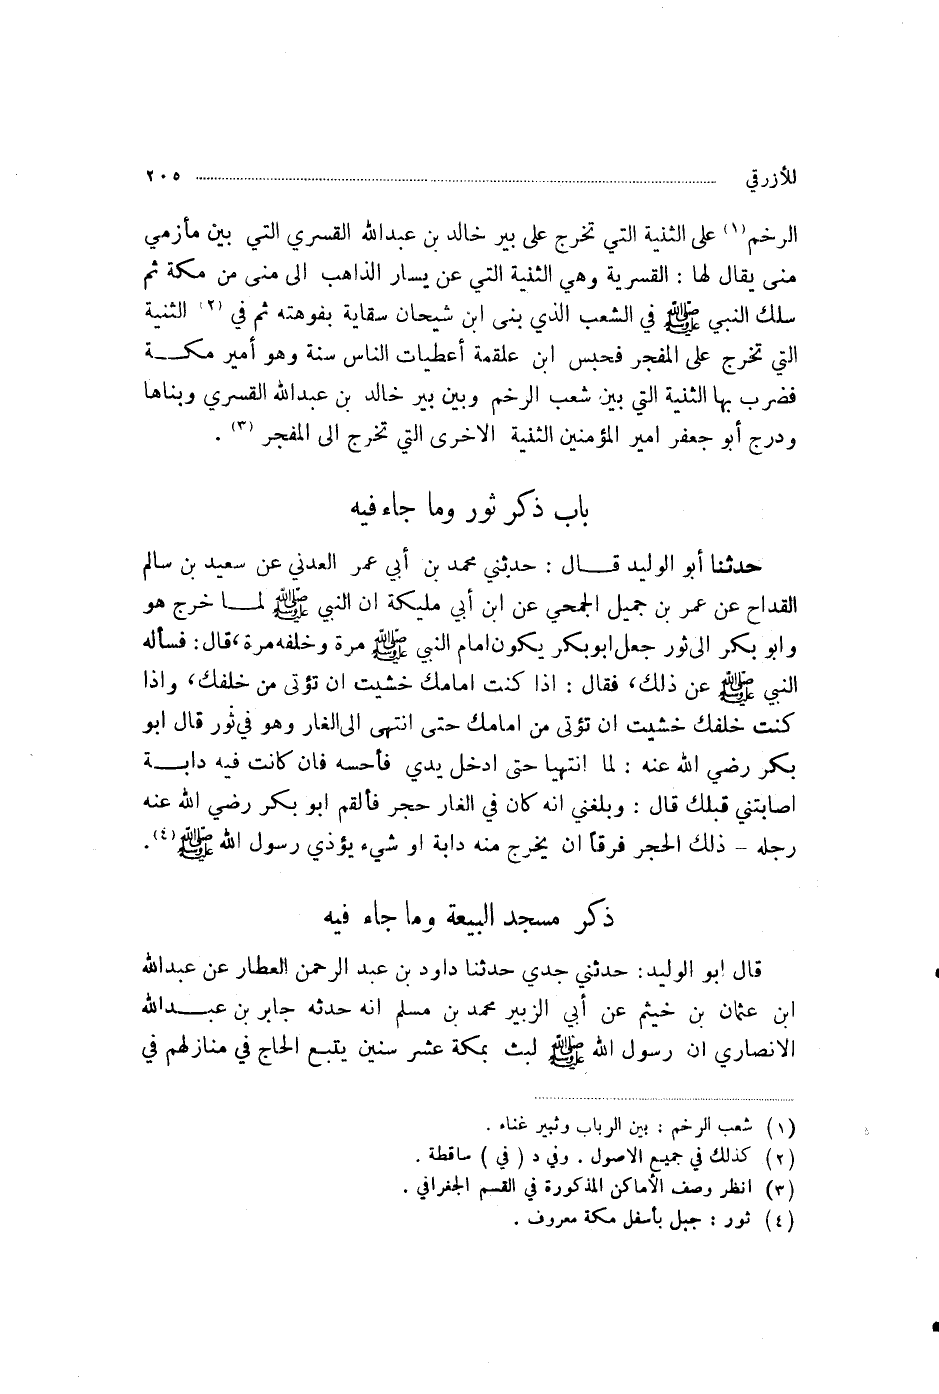 للأزرقي ........ ٢٠٥
الرخم (١) على الثنية التي تخرج على بير خالد بن عبدالله القسري التي بين مأزمي
منى يقال لها : القسرية وهي الثنية التي عن يسار الذاهب الى منى من مكة ثم
سلك النبي ﷺ في الشعب الذي بنى ابن شيحان سقاية بفوهته ثم في (٢) الثنية
التي تخرج على المفجر فحبس ابن علقمة أعطيات الناس سنة وهو أمير مكة
فضرب بها الثنية التي بين شعب الرخم وبين بير خالد بن عبدالله القسري وبناها
ودرج أبو جعفر امير المؤمنين الثنية الاخرى التي تخرج الى المفجر (٣) .
باب ذكر ثور وما جاء فيه
حدثنا أبو الوليد قال : حدثني محمد بن أبي عمر العدني عن سعيد بن سالم
القداح عن عمر بن جميل الجمحي عن ابن أبي مليكة ان النبي ﷺ لما خرج هو
وابو بكر الى ثور جعل ابوبكر يكون امام النبي ﷺ مرة وخلفه مرة ، قال : فسأله
النبي ﷺ عن ذلك ، فقال : اذا كنت امامك خشيت ان تؤتى من خلفك ، واذا
كنت خلفك خشيت ان تؤتى من امامك حتى انتهى الى الغار وهو في ثور قال ابو
بكر رضي الله عنه : لما انتهيا حتى ادخل يدي فأحسه فان كانت فيه دابة
اصابتني قبلك قال : وبلغني انه كان في الغار حجر فألقم ابو بكر رضي الله عنه
رجله – ذلك الحجر فرقاً ان يخرج منه دابة او شيء يؤذي رسول الله ﷺ (٤) .
ذكر مسجد البيعة وما جاء فيه
قال ابو الوليد : حدثني جدي حدثنا داود بن عبد الرحمن العطار عن عبدالله
ابن عثمان بن خيثم عن أبي الزبير محمد بن مسلم انه حدثه جابر بن عبدالله
الانصاري ان رسول الله ﷺ لبث بمكة عشر سنين يتبع الحاج في منازلهم في
(١) شعب الرخم : بين الرباب وثبير غناء .
(٢) كذلك في جميع الاصول . وفي د ( في ) ساقطة .
(٣) انظر وصف الأماكن المذكورة في القسم الجغرافي .
(٤) ثور : جبل بأسفل مكة معروف .